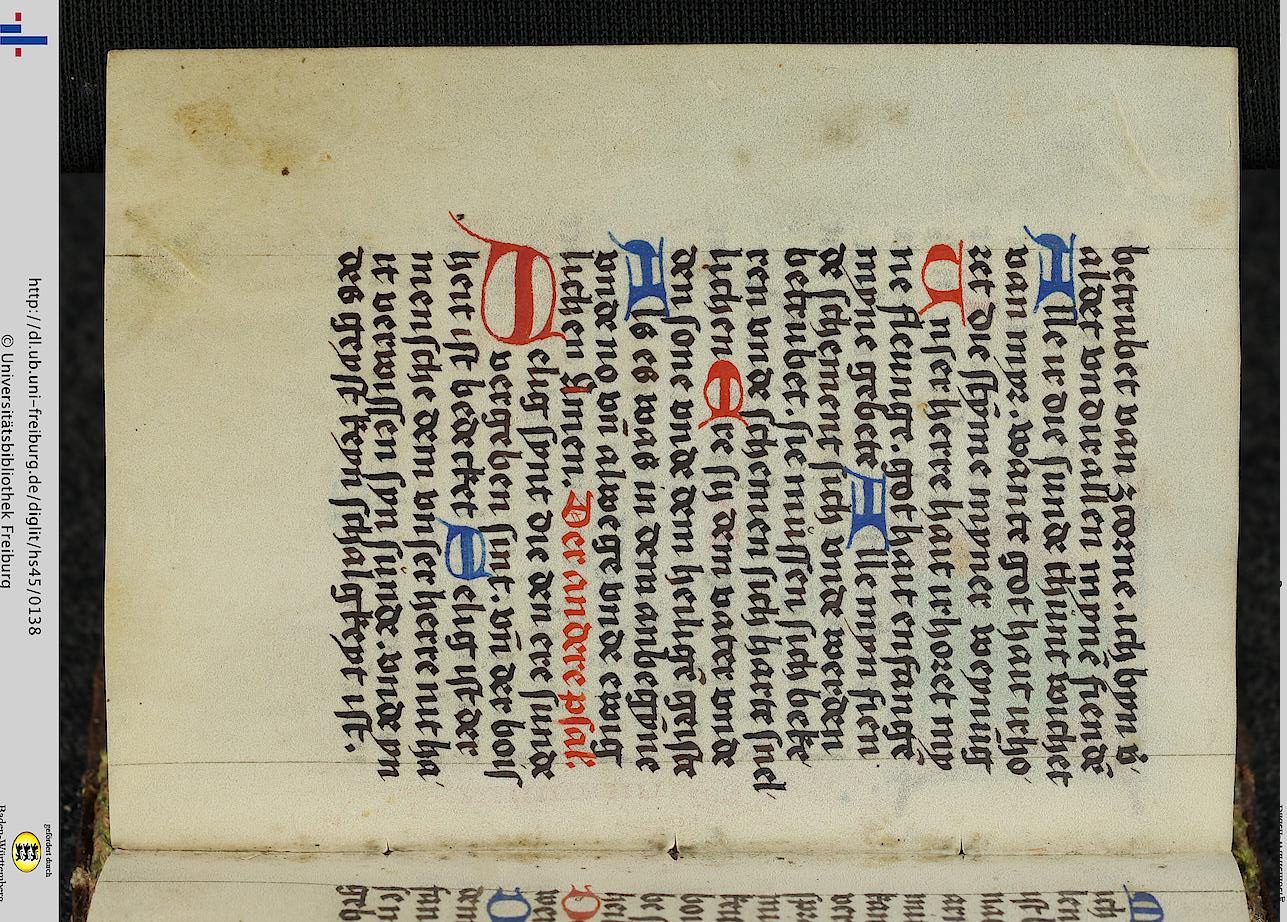 betrubet van zorne. ich byn v͛
aldet vndur allen myne̅ fiende̅
Alle ir die sunde thunt wichet
van myr. wante got hait irho
ret die stȳme myner weynu̅g
Unser herre hait irhoret my
ne fleunge. got hait enfange̅
myne gebete Alle myn fien
de schement sich vnde werden
betrubet. sie mussen sich beke
ren vnde schemen sich harte snel
lichen Ere sy dem vater vnde
dem sone vnde dem heilige̅ geiste
Als es was in dem anbegy̅ne
vnde no vn̅ alwege vnde ewig
lichen Amen. Der andere psal.
Selig synt die den ere sunde
vergeben sint. vn̅ der bos
heit ist bedecket Selig ist der
mensche dem vnser herre nit ha
it verwissen syn su̅nde. vnde yn
des geyst keyn schalgkeyt ist.
http://dl.ub.uni-freiburg.de/diglit/hs45/0138
© Universitätsbibliothek Freiburg
gefördert durch
Baden-Württemberg